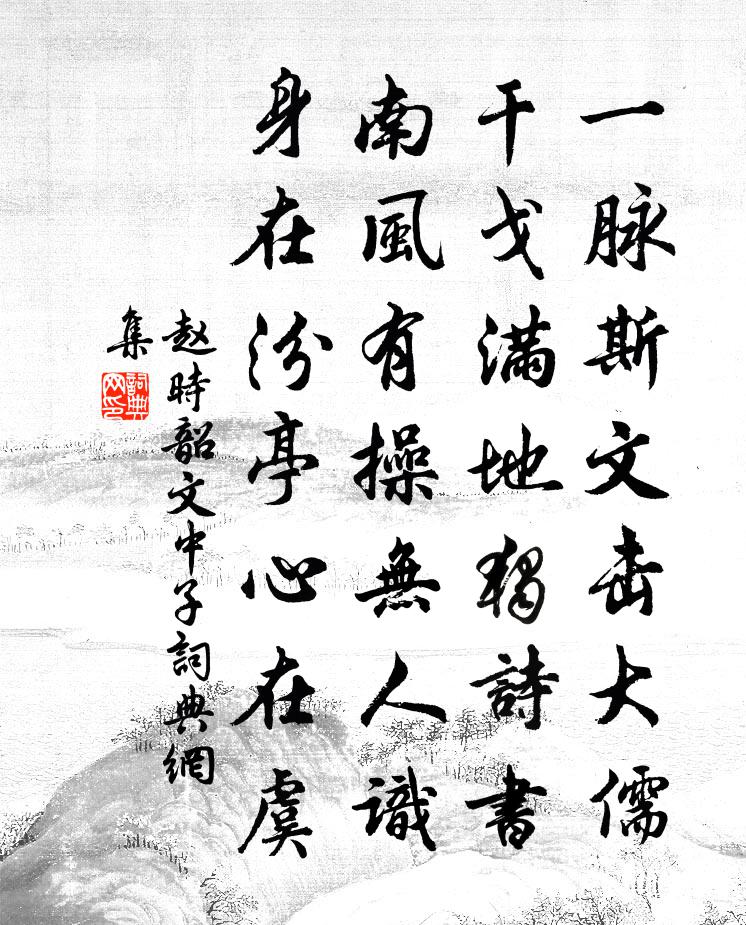 一脉斯文出大儒
干戈滿地獨詩書
南風有操無人識
身在汾亭心在虞
赵時韶文中子詞典網
集
詞典
网印